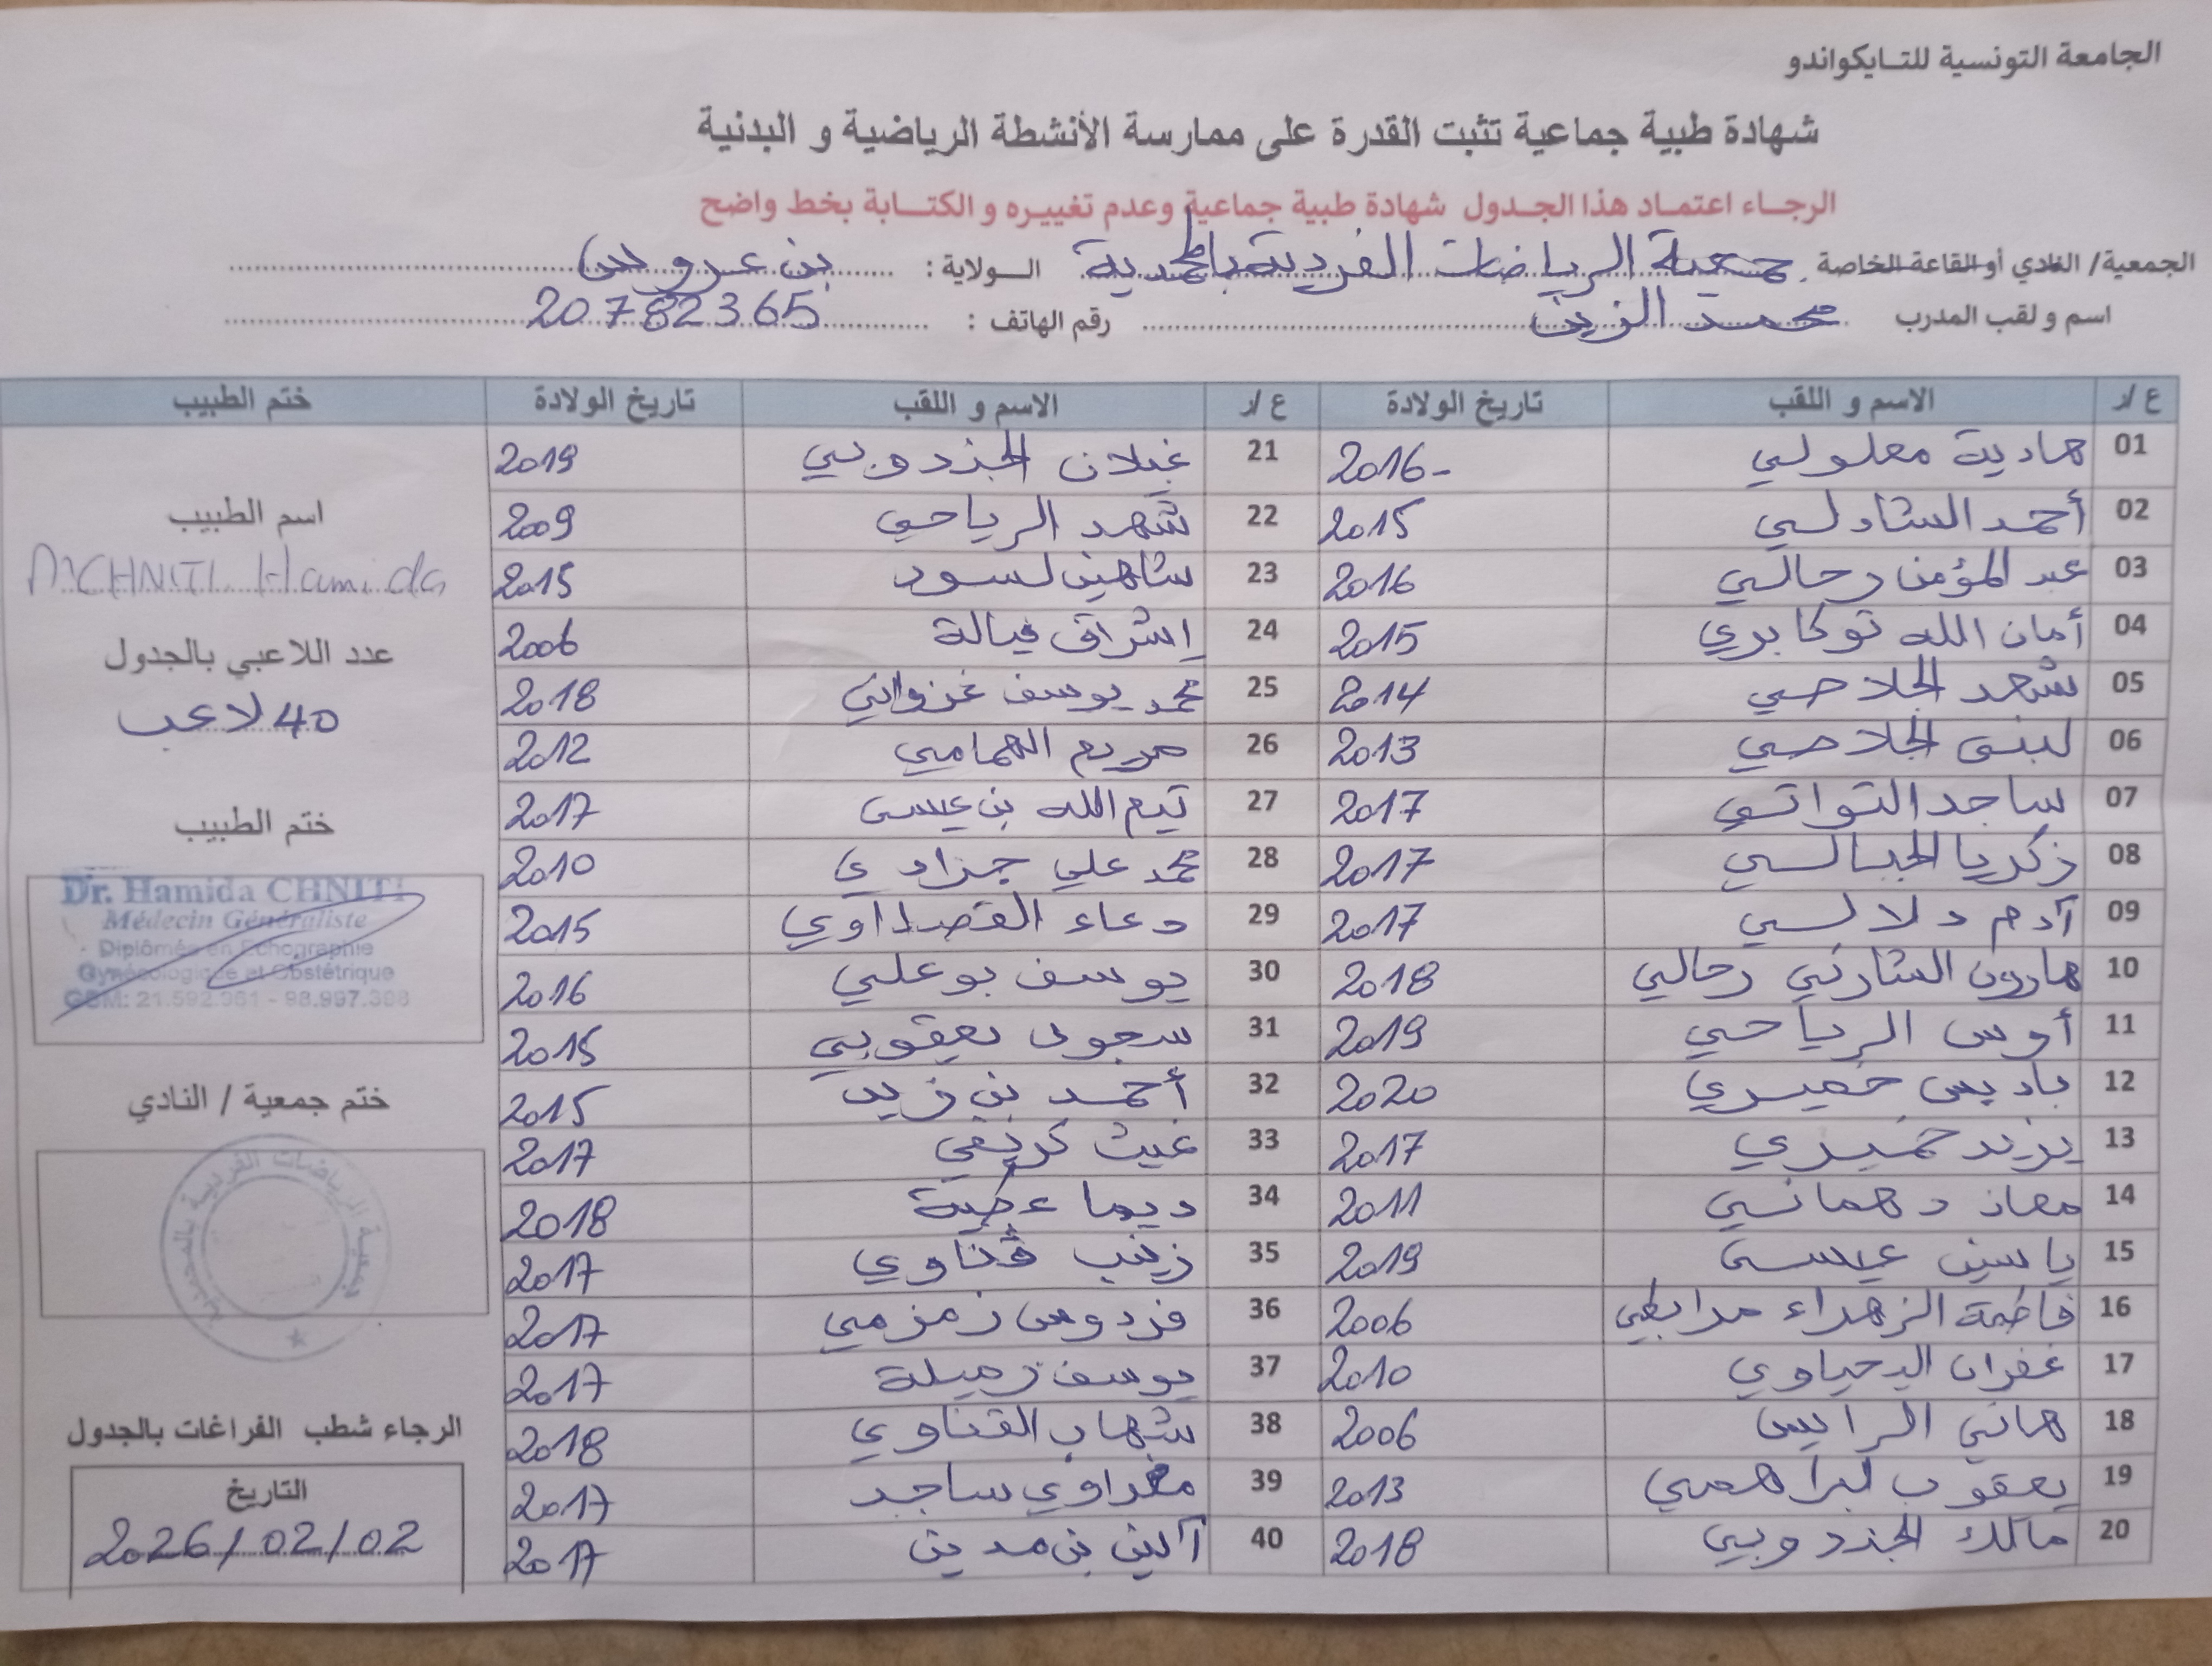 الجامعة التونسية للتـايكواندو
شهادة طبية جماعية تثبت القدرة على ممارسة الأنشطة الرياضية و البدنية
الرجـاء اعتمـاد هذا الجـدول شهادة طبية جماعية وعدم تغييـره و الكتـابة بخط واضح
الجمعية/ النادي أو القاعة الخاصة جمعية الرياضات الفردية بالمحمدية الـولاية : بن عروس
اسم و لقب المدرب محمد الزين رقم الهاتف : 20782365
ع/ر الاسم و اللقب تاريخ الولادة ع/ر الاسم و اللقب تاريخ الولادة ختم الطبيب
01 هادية معلولي 2016- 21 غيلان الجندوبي 2019
02 أحمد الشادلي 2015 22 شهد الرياحي 2009
03 عبد المؤمن رحالي 2016 23 شاهين لسود 2015
04 أمان الله توكابري 2015 24 إشراق فيالة 2006
05 شهد الجلاصي 2014 25 محمد يوسف غزواني 2018
06 لبنى الجلاصي 2013 26 مريم الهمامي 2012
07 ساجد التواتي 2017 27 تيم الله بن عيسى 2017
08 زكريا الجبالي 2017 28 محمد علي جرادي 2010
09 آدم دلالي 2017 29 دعاء القصداوي 2015
10 هارون الشارني رحالي 2018 30 يوسف بوعلي 2016
11 أوس الرياحي 2019 31 سجود يعقوبي 2015
12 باديس خميري 2020 32 أحمد بن زيد 2015
13 يزيد خميري 2017 33 غيث كريفي 2017
14 معاذ دهماني 2011 34 ديما 2018
15 ياسين عيسى 2019 35 زينب ڨناوي 2017
16 فاطمة الزهراء مرابطي 2006 36 فردوس زمزمي 2017
17 غفران اليحياوي 2010 37 يوسف زميلة 2017
18 هاني الرايس 2006 38 شهاب القناوي 2018
19 يعقوب لبراهمي 2013 39 مغراوي ساجد 2017
20 مالك الجندوبي 2018 40 آلين بن مدين 2017
اسم الطبيب
Dr CHNITI Hamida
عدد اللاعبي بالجدول
40 لاعب
ختم الطبيب
Dr. Hamida CHNITI
Médecin Généraliste
- Diplômée en Echographie
Gynécologique et Obstétrique
GSM: 21.592.961 - 98.997.308
ختم جمعية / النادي
جمعية الرياضات الفردية بالمحمدية
الرجاء شطب الفراغات بالجدول
التاريخ
2026/02/02